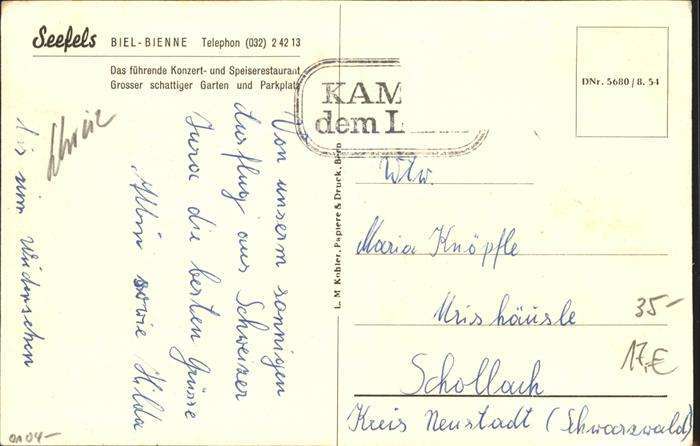 Seefels BIEL-BIENNE Telephon (032) 2 42 13
Das führende Konzert- und Speiserestaurant
Grosser schattiger Garten und Parkplatz
Von unserm sonnigen
Ausflug aus Schweizer
Jura die besten Grüsse
Albin sowie Hilda
bis zum Wiedersehen
Schweiz
KAM
dem L
DNr. 5680/8. 54
L. M. Kohler, Papiere & Druck, Bern
Wtw.
Maria Knöpfle
Urishäusle
Schollach
Kreis Neustadt (Schwarzwald)
35-
17,€